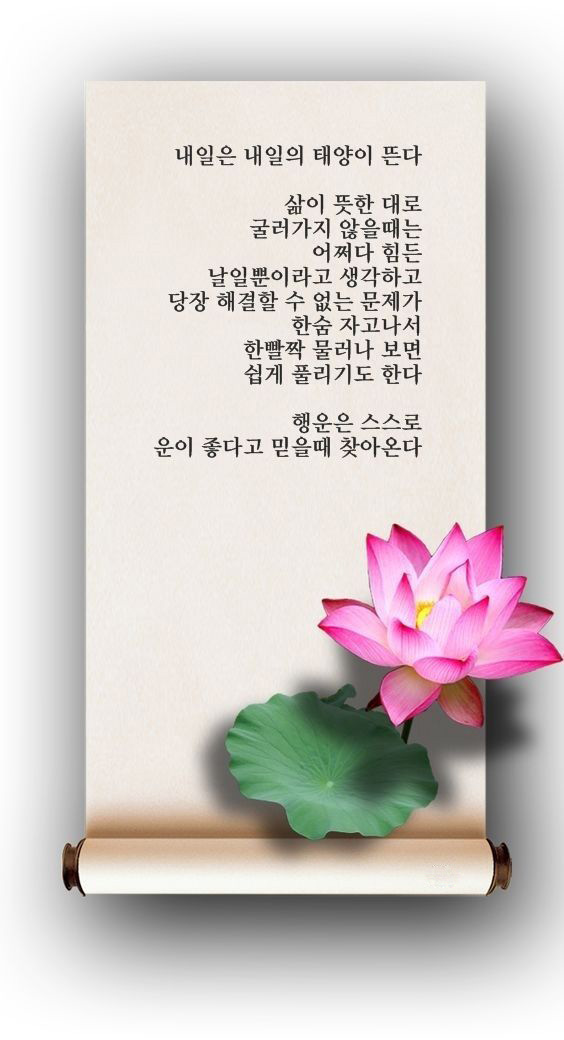 내일은 내일의 태양이 뜬다
삶이 뜻한 대로
굴러가지 않을때는
어쩌다 힘든
날일뿐이라고 생각하고
당장 해결할 수 없는 문제가
한숨 자고나서
한빨짝 물러나 보면
쉽게 풀리기도 한다
행운은 스스로
운이 좋다고 믿을때 찾아온다